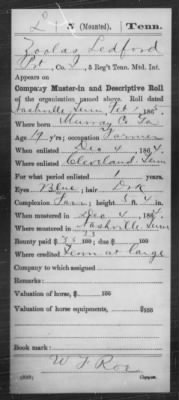 L 5 (Mounted). Tenn.
Zoalas Ledford
Pvt, Co. I, 5 Reg't Tenn. Mtd. Inf.
Appears on
Company Muster-in and Descriptive Roll
of the organization named above. Roll dated
Nashville Tenn Feb 1, 1865.
Where born Murray Co Ga
Age 19 y'rs; occupation Farmer
When enlisted Dec 4, 1864.
Where enlisted Cleveland Tenn
For what period enlisted 1 years.
Eyes Blue; hair Drk
Complexion ; height 5 ft. 4 in.
When mustered in Dec 4, 1864.
Where mustered in Nashville Tenn
Bounty paid $ 100; due $ 100
Where credited Tenn at large
Company to which assigned
Remarks:
Valuation of horse, $ 100
Valuation of horse equipments, $ 100
Book mark:
W F Roe
Copyist.